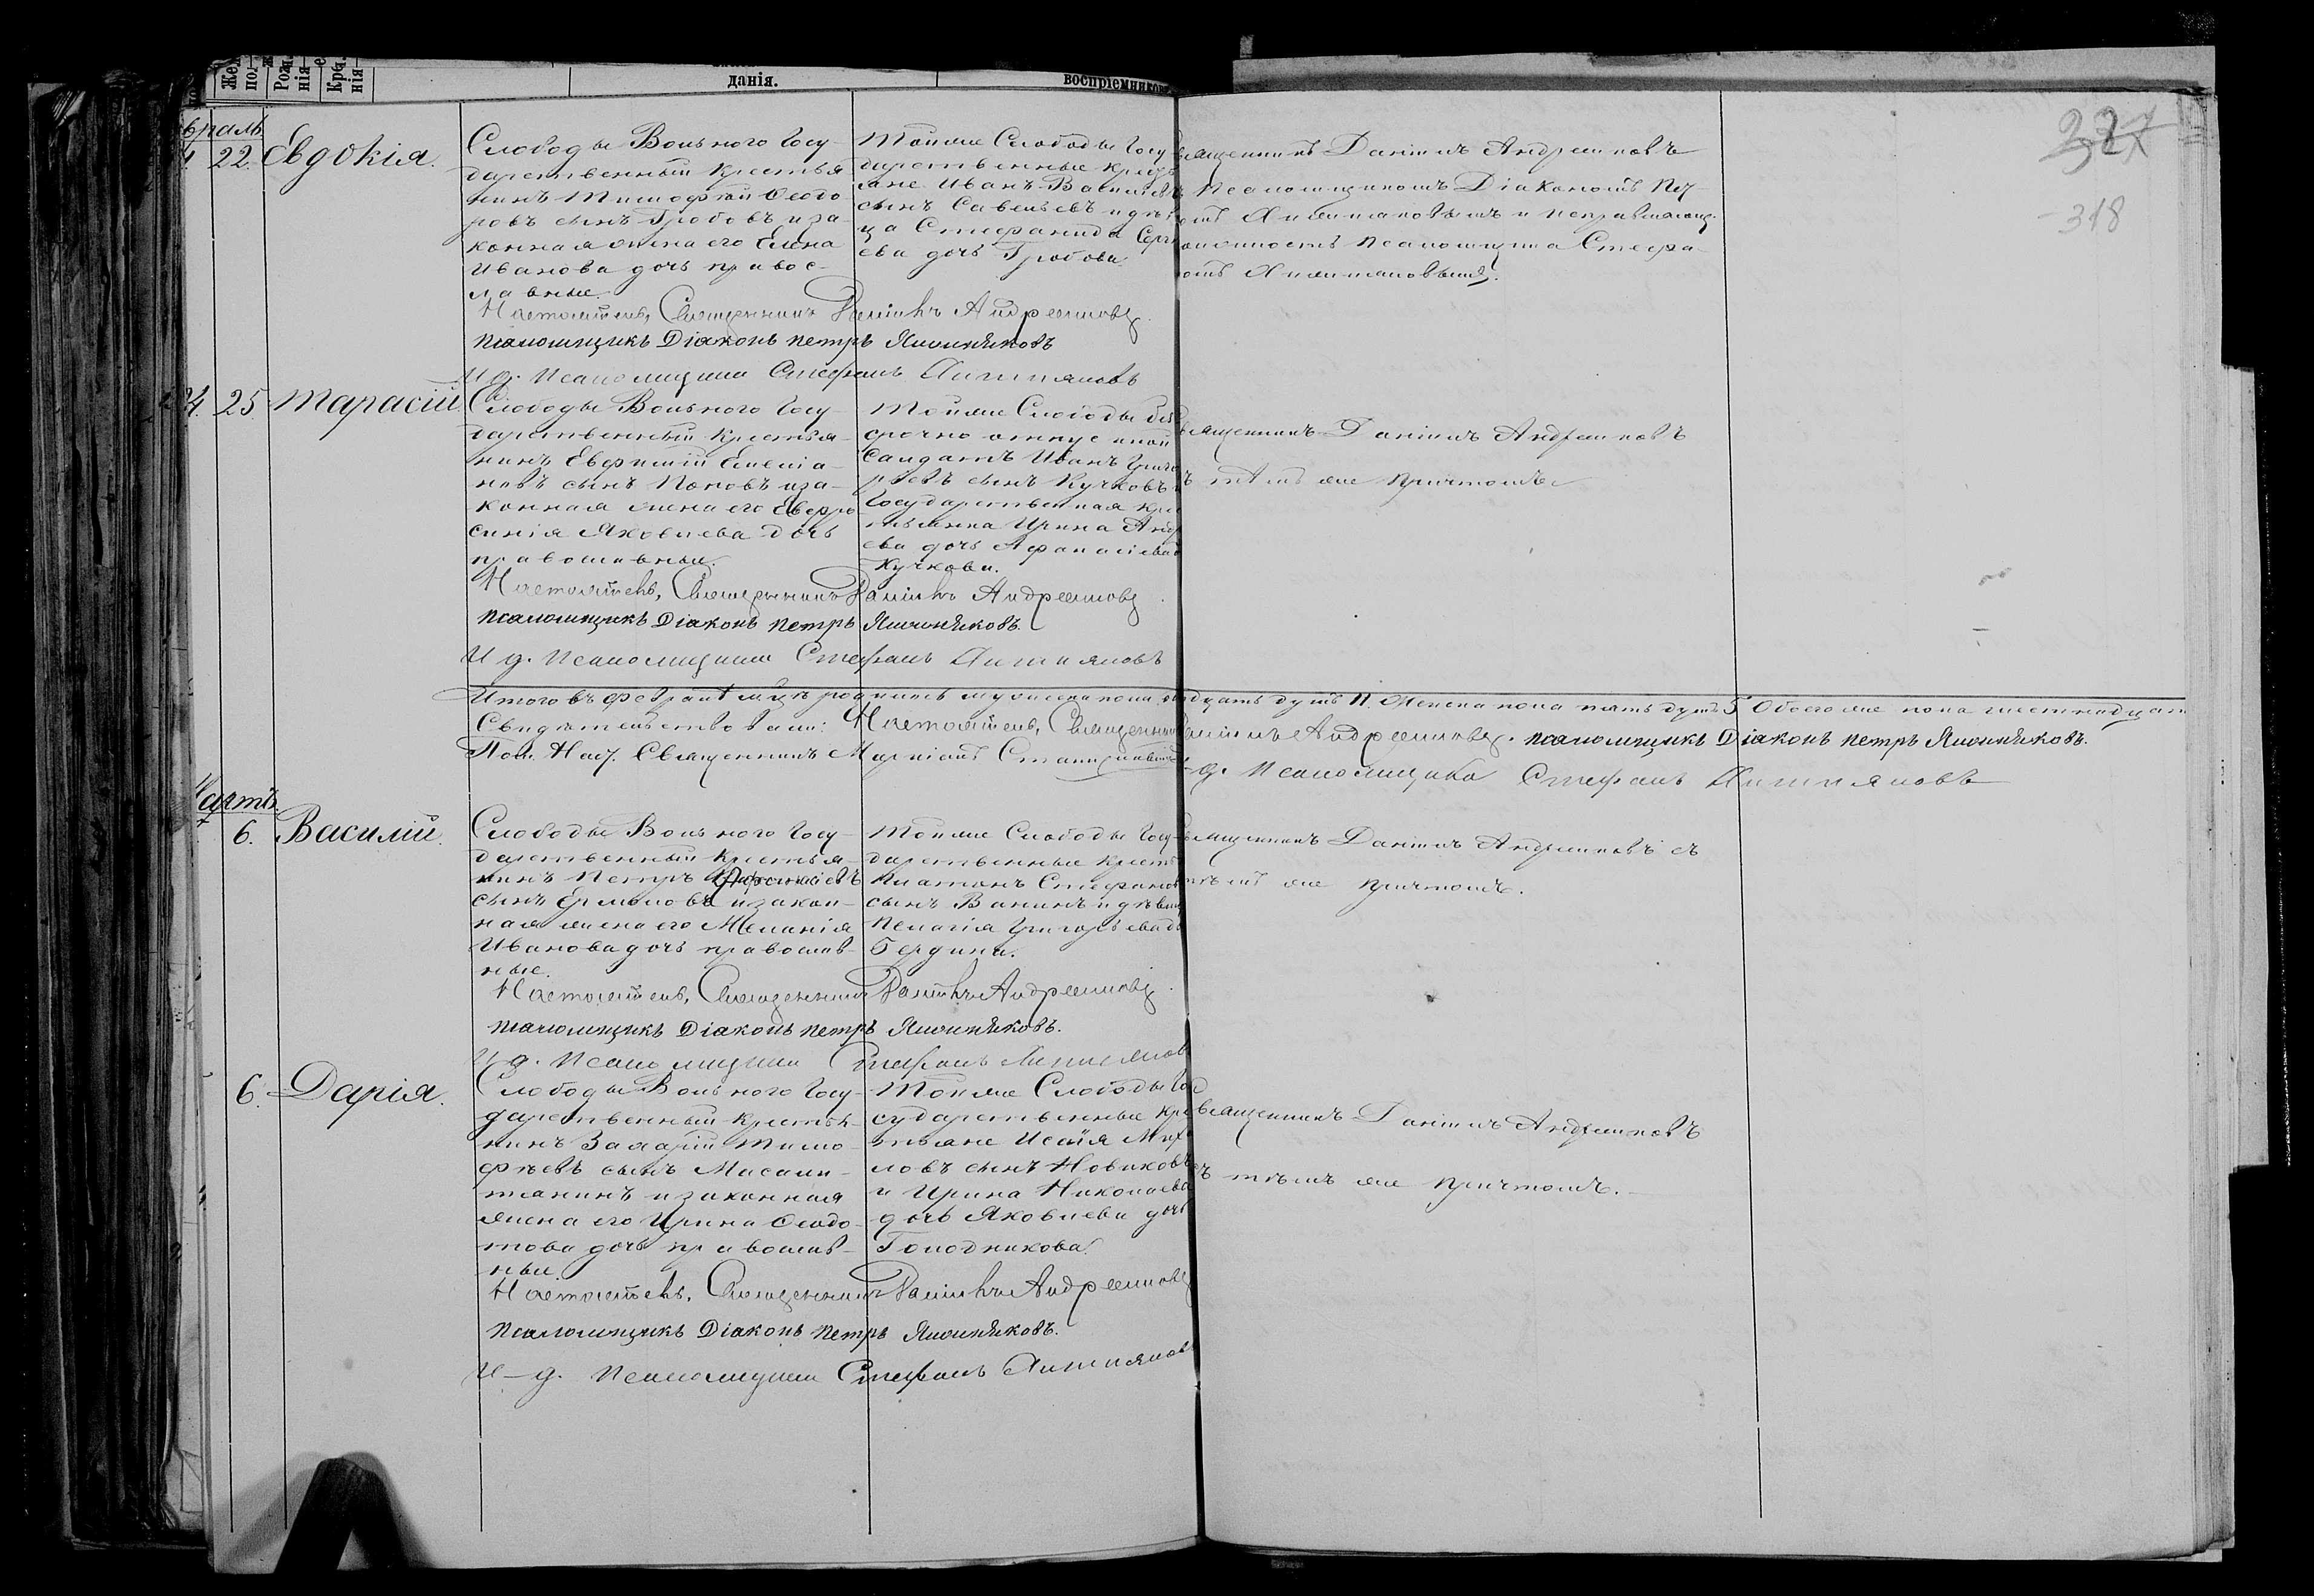 данія.
воспріемников
327
318
враль
22. Евдокія.
Слободы Вольного Госу-
дарственный крестья
нинъ Тимофей Ѳеодо
ровъ сынъ Гробовъ и за-
конная жена его Елена
Иванова дочь правос-
лавные.
Тойже Слободы Госу
дарственные крес
яне Иванъ Василіевъ
сынъ Савельевъ и дѣв
ца Стефанида Серг
ева дочь Гробова
священникъ Даніилъ Андреянновъ
Псаломщикомъ Діакономъ Пет-
должность псаломщика Стефа-
Настоятель, Священникъ Даніилъ Андреянновъ.
псаломщикъ Діаконъ петръ
И д. Псаломщика Стефанъ
24. 25 Тарасій
Слободы Вольного Госу-
дарственный крестья-
нинъ Евфимій Емелія-
новъ сынъ Поповъ и за-
конная жена его Евфро
синія Яковлева дочь
православные.
Тойже Слободы без
срочно отпускной
Солдатъ Иванъ Григо
рьевъ сынъ Кучковъ и
Государственная кре
тьянка Ирина Андр
ева дочь Афанасіева
Кучкова.
священникъ Даніилъ Андреянновъ
съ тѣмъ же причтомъ
Настоятель, Священникъ Даніилъ Андреянновъ
псаломщикъ Діаконъ петръ
И д. Псаломщика Стефанъ
Итого въ Февралѣ м-цѣ родилось мужеска пола одинадцать душъ 11. Женска пола пять душъ 5 Обоего же пола шестнадцат
Свидѣтельствовали: Настоятель, Священникъ Даніилъ Андреянновъ. псаломщикъ Діаконъ петръ
Пом. Наст. Священникъ
д. Псаломщика Стефанъ
Мартъ
6. Василій.
Слободы Вольного Госу-
дарственный крестья-
нинъ Петръ
сынъ Ермоловъ и закон-
ная жена его Меланія
Иванова дочь православ-
ные.
Тойже Слободы Госу-
дарственные крест
Платонъ Стефанов
сынъ Ванинъ и дѣвиц
Пелагія Григорьева д
Бердина.
священникъ Даніилъ Андреянновъ съ
тѣмъ же причтомъ.
Настоятель, Священникъ Даніилъ Андреянновъ.
псаломщикъ Діаконъ петръ
И д. Псаломщика Стефанъ
6. Дарія.
Слободы Вольного Госу-
дарственный крестья-
нинъ Захарій Тимо-
фѣевъ сынъ Масали-
танинъ и законная
жена его Ирина Ѳеодо-
това дочь православ-
ные.
Тойже Слободы Го
сударственные кре
тьяне Исаія Миха
ловъ сынъ Новиковъ
и Ирина Николаева
дочь Яковлева дочь
Голодникова.
священникъ Даніилъ Андреянновъ
съ тѣмъ же причтомъ.
Настоятель, Священникъ Даніилъ Андреянновъ
псаломщикъ Діаконъ петръ
И д. Псаломщика Стефанъ